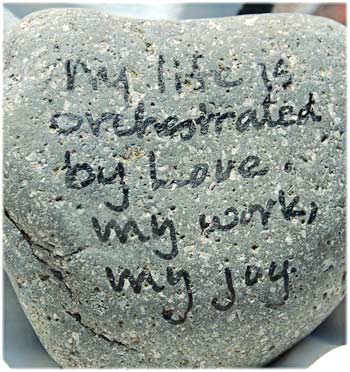 my life is
orchestrated
by Love.
my work,
my joy